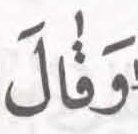 وَقَالَ